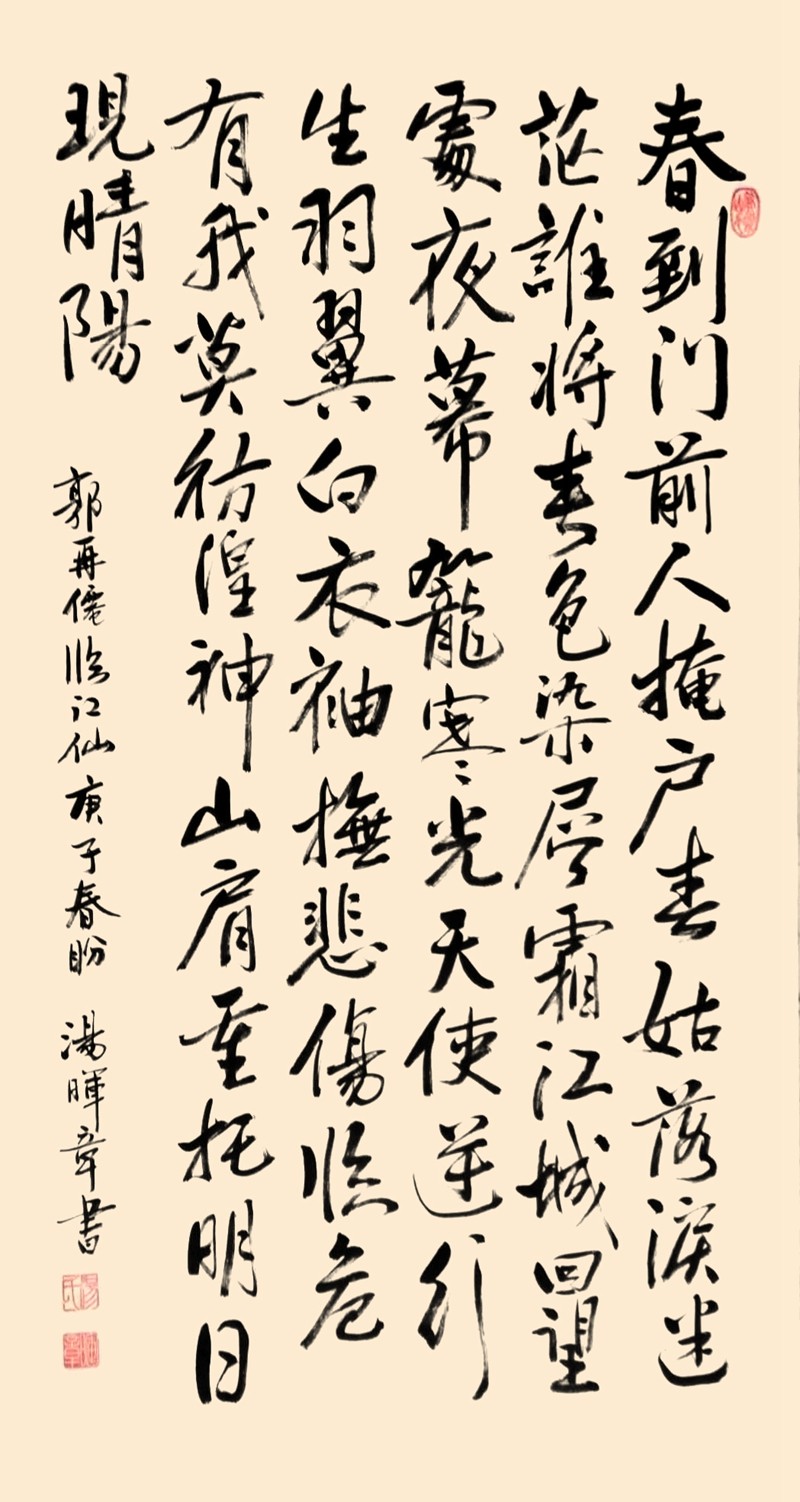 春到门前人掩户春姑落淚迷
茫誰将春色染层霜江城回望
處夜幕籠寒光天使逆行
生羽翼白衣袖撫悲傷临危
有我莫彷徨神山肩重托明日
現晴陽
郭再僊临江仙庚子春盼 湯暉章書